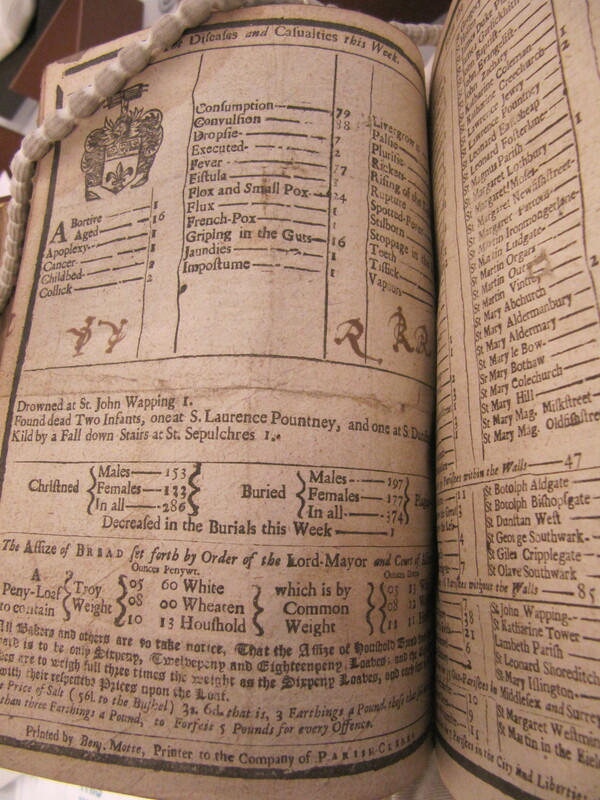 The Diseases and Casualties this Week.
Abortive 1
Aged 16
Apoplexy 1
Cancer 1
Childbed 2
Collick 2
Consumption 79
Convulsion 88
Dropsie 7
Executed 2
Fever
Fistula 1
Flox and Small Pox 24
Flux 1
French-Pox 1
Griping in the Guts 16
Jaundies 1
Impostume 1
Livergrow
Palsie
Plurisie
Rickets
Rising of the
Rupture
Spotted
Stilborn
Stoppage in the
Teeth
Tissick
Vapours
Drowned at St. John Wapping 1.
Found dead Two Infants, one at S. Laurence Pountney, and one at S.
Kild by a Fall down Stairs at St. Sepulchres 1.
Christned
Males 153
Females 133
In all 286
Buried
Males 197
Females 177
In all 374
Decreased in the Burials this Week 1
The Assize of BREAD set forth by Order of the Lord-Mayor and Court of
A Peny-Loaf to contain
Troy Weight
Ounces Penywt.
05 60 White
08 00 Wheaten
10 13 Houshold
which is by Common Weight
Ounces
05 13
08 12
11 11
All Bakers and others are to take notice, That the Assize of Houshold Bread
is to be only Sixpeny, Twelvepeny and Eighteenpeny Loaves; and the
are to weigh full three times the weight as the Sixpeny Loaves, and
with their respective Prices upon the Loaf.
Price of Salt (56l. to the Bushel) 3s. 6d. that is, 3 Farthings a Pound.
than three Farthings a Pound, to Forfeit 5 Pounds for every Offence.
Printed by Benj. Motte, Printer to the Company of PARISH-CLERKS
Katharine Coleman
Katharine Creechurch
Lawrence Jewry
Lawrence Pountney
Leonard Eastcheap
Leonard Fosterlane
Magnus Parish
Margaret Lothbury
Margaret Moses
Margaret Newfishstreet
Margaret Pattons
Martin Ironmongerlane
Martin Ludgate
Martin Orgars
Martin Outwich
St Martin Vintrey
St Mary Abchurch
St Mary Aldermanbury
St Mary Aldermary
St Mary le Bow
St Mary Bothaw
St Mary Colechurch
St Mary Hill
St Mary Mag. Milkstreet
St Mary Mag. Oldfishstreet
Parishes within the Walls 47
St Botolph Aldgate
St Botolph Bishopsgate
St Dunstan West
St George Southwark
St Giles Cripplegate
St Olave Southwark
Parishes without the Walls 85
St. John Wapping
St Katharine Tower
Lambeth Parish
St Leonard Shoreditch
St Mary Islington
Out-Parishes in Middlesex and Surrey
St Margaret Westmin
St Martin in the Fields
Parishes in the City and Liberties